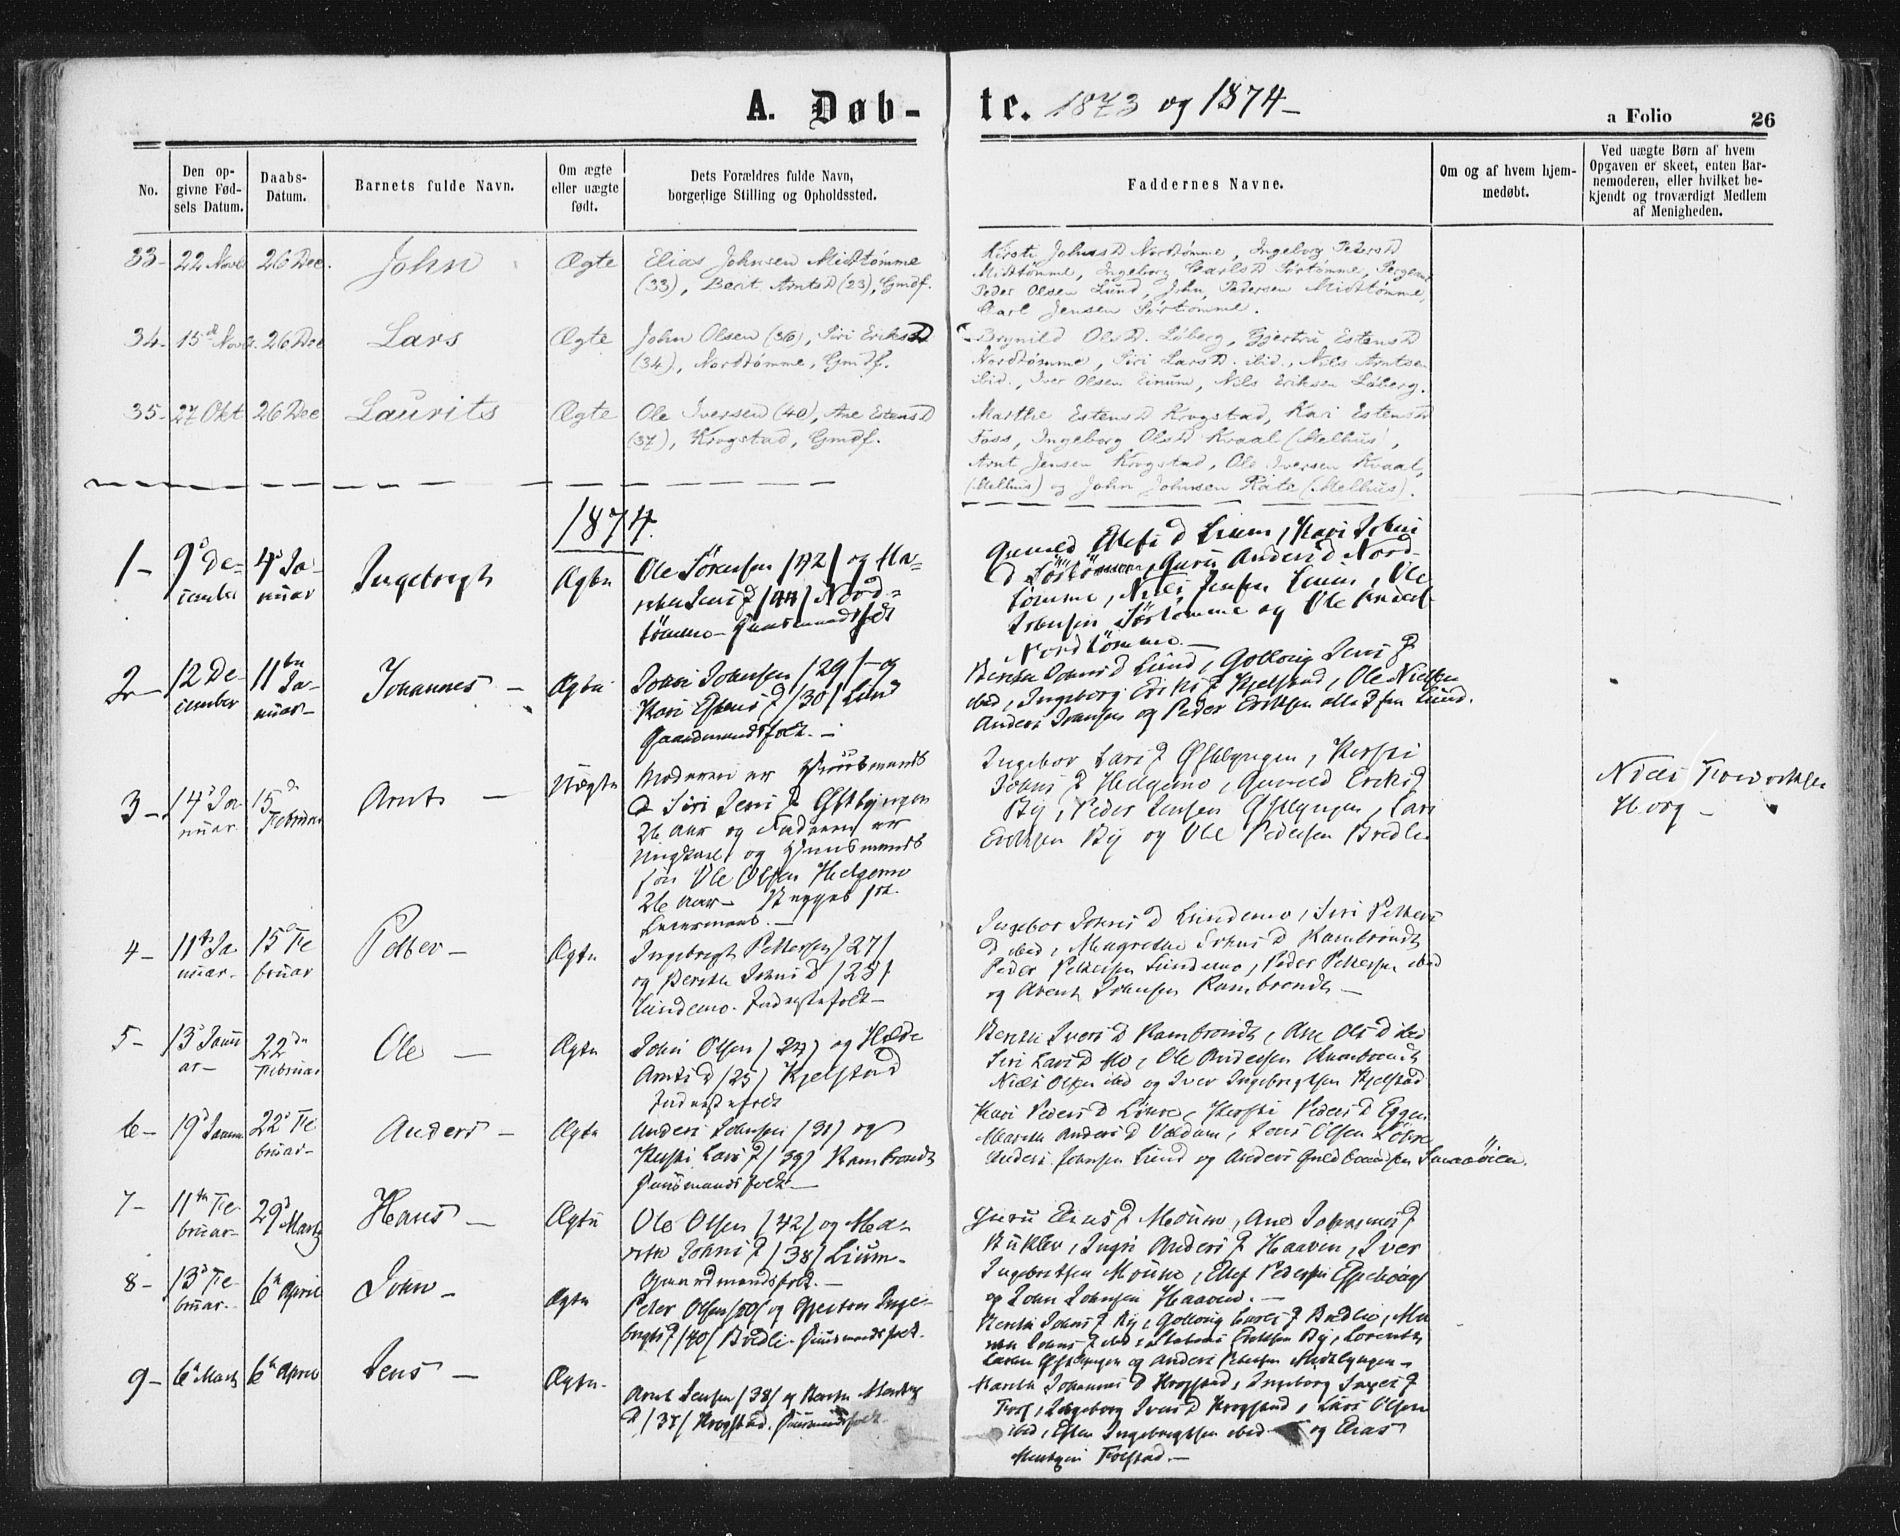 A. Døb-te. 1873 og 1874-
a Folio 26
No.
Den opgivne Fødsels Datum.
Daabs-Datum.
Barnets fulde Navn.
Om ægte eller uægte født.
Dets Forældres fulde Navn, borgerlige Stilling og Opholdssted.
Faddernes Navne.
Om og af hvem hjemmedøbt.
Ved uægte Børn af hvem Opgaven er skeet, enten Barnemoderen, eller hvilket bekjendt og troværdigt Medlem af Menigheden.
33- 22 Novb 26 Dec. John Ægte
Elias Johnsen Midttømme
(33), Berit Arntsd (23), Gmdf.
Kirsti Johnsd Nordtømme, Ingeborg Petersd
Midttømme, Ingeborg Carlsd Sørtømme,
Peder Olsen Lund, John Pedersen Midttømme,
Carl Jensen Sørtømme.
34- 15d Novb. 26 Dec Lars Ægte
John Olsen (36), Siri Eriksd
(34), Nordtømme, Gmdf.
Brynild Olsd. Løberg, Gjertru Estensd
Nordtømme, Siri Larsd. ibid., Nils Arntsen
ibid., Iver Olsen Einum, Nils Eriksen Løberg.
35- 27 Okt 26 Dec Laurits Ægte
Ole Iversen (40), Ane Estensd
(37), Krogstad, Gmdf.
Marthe Estensd Krogstad, Kari Estensd
Foss, Ingeborg Olsd Kvaal (Melhus),
Arnt Jensen Krogstad, Ole Iversen Kvaal,
(Melhus) og John Johnsen Rate (Melhus).
1874.
1- 9d December 4d Januar Ingebregt Ægte
Ole Sørensen /42/ og Ma-
Jensd /44/ Nord-
tømme - Gaardmandsfolk
Gunild d Lium, Kari Johns
d Sørtømme, Guru Andersd Nord-
tømme, Niels Jensen Lium, Ole
Johnsen Sørtømme og Ole
Nordtømme.-
2- 12 December 11te Januar- Johannes - Ægte
John Johnsen /29/ og
Kari Estensd /30/ Lund
Gaardmandsfolk.-
Berithe Johnsd Lund, Gollaug Jensd
ibid, Ingeborg Eriksd Kjelstad, Ole Nielsen
Anders Johnsen og Peder Eriksen alle 3 fra Lund.
3- 14d Januar 15d Februar Arnt - Uægte
Moderen er Huusmands
d Siri Jensd Østlyngen
26 Aar og Faderen er
Ungkarl og Huusmands
søn Ole Olsen Helgemo
26 Aar- Begges 1ste
Leiermaal.-
Ingebor Larsd Østlyngen, Kirsti
Johnsd Helgemo, Gunild Eriksd
By, Peder Jensen Østlyngen, Lars
Eriksen By og Ole Pedersen Bredli
Niels
Horg -
4- 11te Januar- 15d Februar Petter- Ægte
Ingebregt Pettersen /27/
og Berithe Johnsd /28/
Lundemo. Inderstefolk-
Ingebor Johnsd Lundemo, Siri Petters
d ibid, Magrethe d Rambrondt
Peder Pettersen Lundemo, Peder Pettersen ibid
og Arent Johnsen Rambrondt-
5- 13d Januar- 22de Februar Ole - Ægte
John Olsen /24/ og
Arntsd /25/ Kjelstad
Inderstefolk
Berithe Iversd Rambrondt, Ane Olsd ibid
Siri Larsd Mo, Ole Andersen Rambrondt
Niels Olsen ibid og Iver Ingebregtsen Kjelstad
6- 19d Januar 22d Februar- Anders - Ægte
Anders Johnsen /31/ og
Kirsti Larsd /39/ Rambrondt
Huusmandsfolk-
Kari Pedersd, Kirsti Pedersd Eggen
Marith Andersd Valdum, Jens Olsen
Anders Johnsen Lund og Anders Guldbrandsen Smaaöien.
7- 11te Februar- 29d Marts Hans - Ægte
Ole Olsen /42/ og Ma-
rith Johnsd /38/ Lium-
Gaardmandsfolk.-
Guru Eliasd, Ane Johannesd
Bukklev, Ingri Andersd Haaven, Iver
Ingebretsen, Ellef Pedersen
og John Johnsen Haaven.-
8- 13d Februar- 6te April John- Ægte
Peter Olsen /50/ og Gjertru Inge-
brigtsd /40/ Bredli- Huusmandsfolk.
Berith Johnsd By, Gollaug Larsd Bredli,
Johnsd ibid, Eriksen By, Lorents
Larsen Østlyngen og Anders Petersen Midtlyngen-
9- 6te Marts 6te April Jens - Ægte.
Arnt Jensen /38/ og
d /37/ Krogstad. Huusmandsfolk.
Marith Johannesd Krogstad, Ingeborg Ingersd
Foss, Ingeborg Iversd Krogstad, Lars Olsen
ibid, Esten Ingebregtsen ibid og Elias
Folstad.-